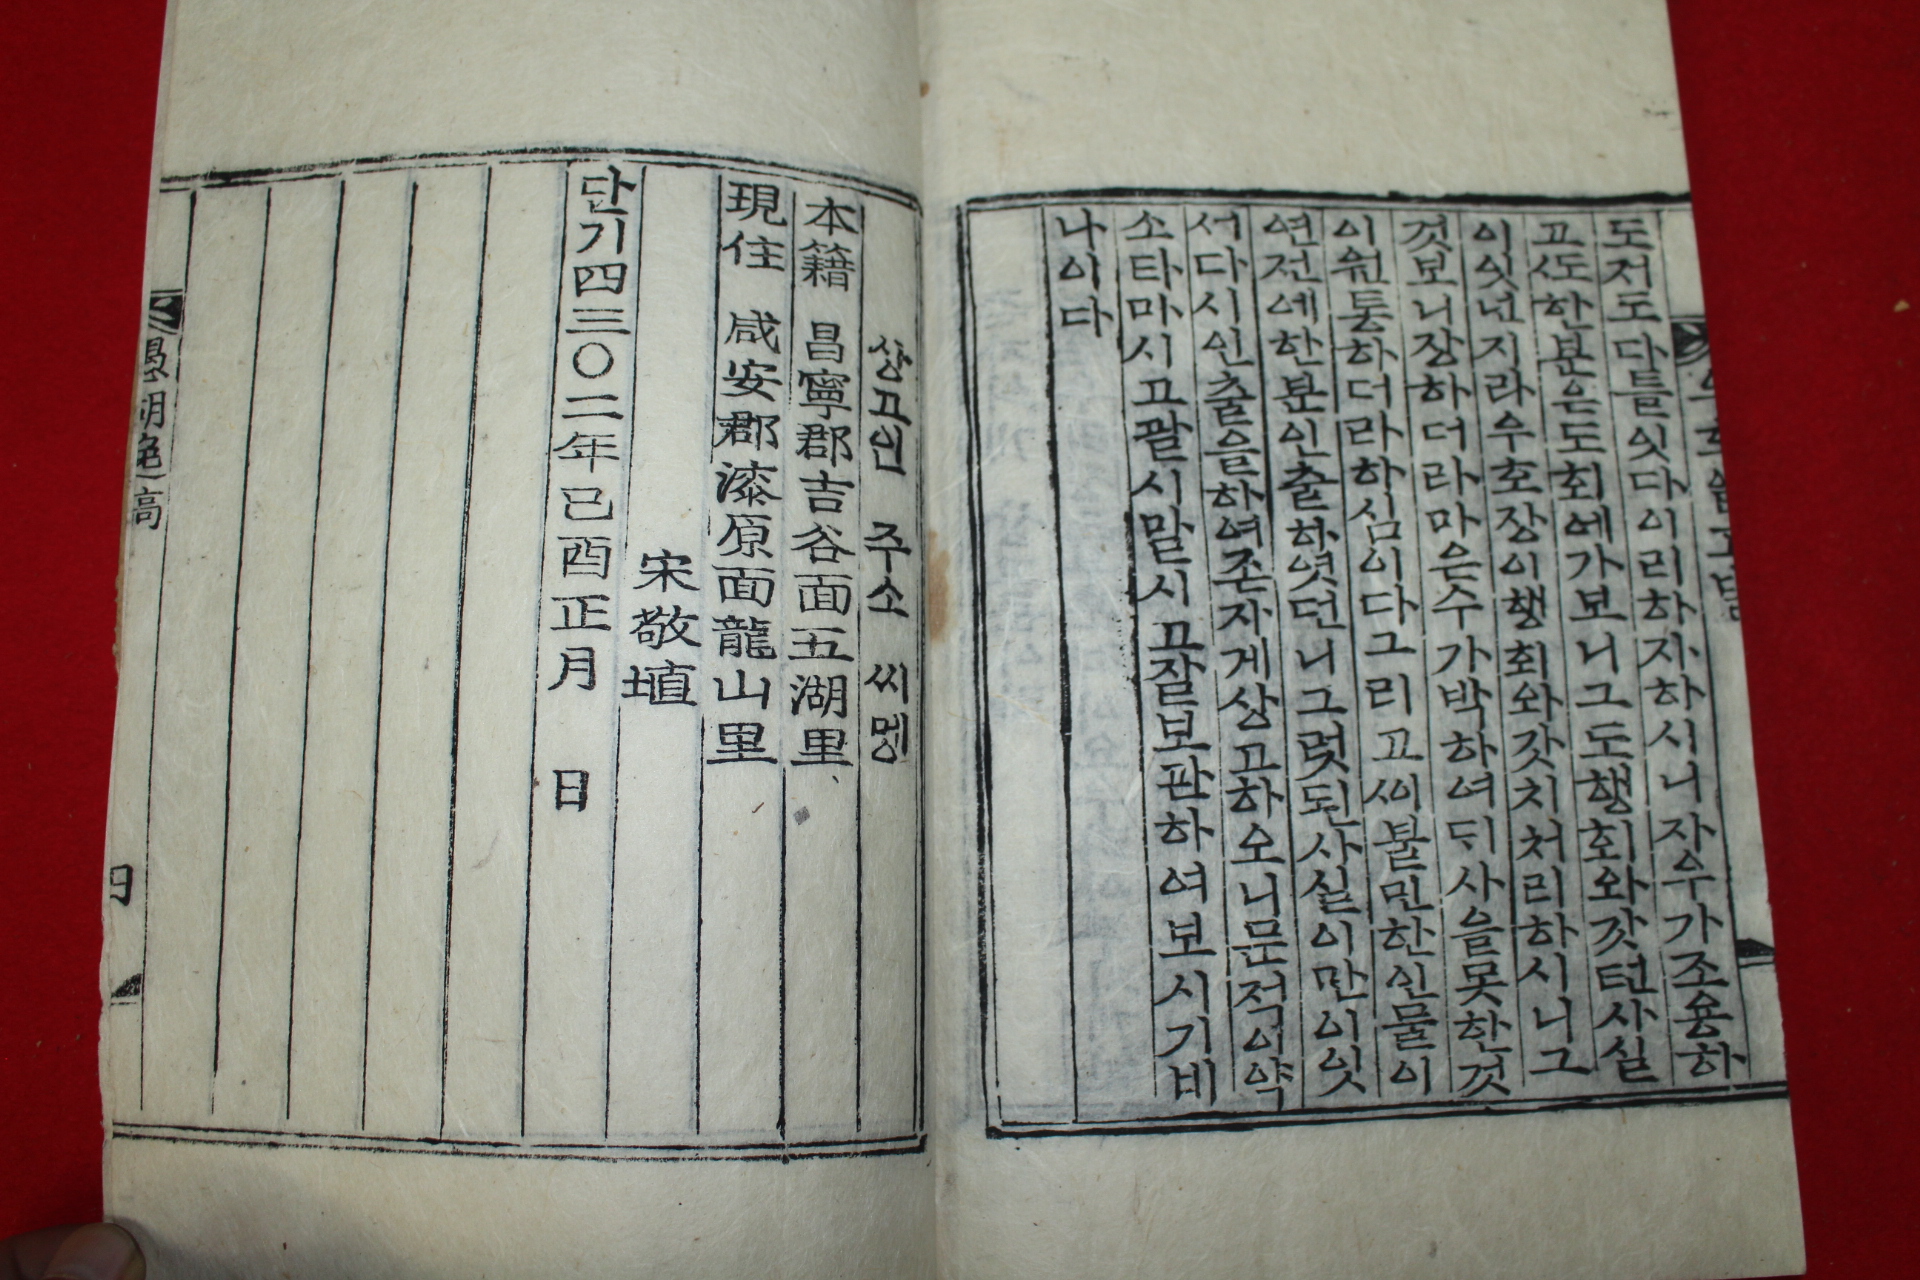 도저도다들잇다이리하자하시니자우가조용하
고또한분은도회에가보니그도행회와갓턴사실
이잇넌지라우호장이행회와갓치처리하시니그
것보니장하더라마은수가박하여뒤사을못한것
이원통하더라하심이다그리고씨불민한인물이
연전에한분인출하엿던니그럿된사실이만이잇
서다시인출을하여존자게상고하오니문적이약
소타마시고괄시말시고잘보관하여보시기비
나이다
상고인 주소 씨명
本籍 昌寧郡吉谷面五湖里
現住 咸安郡漆原面龍山里
宋敬埴
단기四三〇二年己酉正月 日